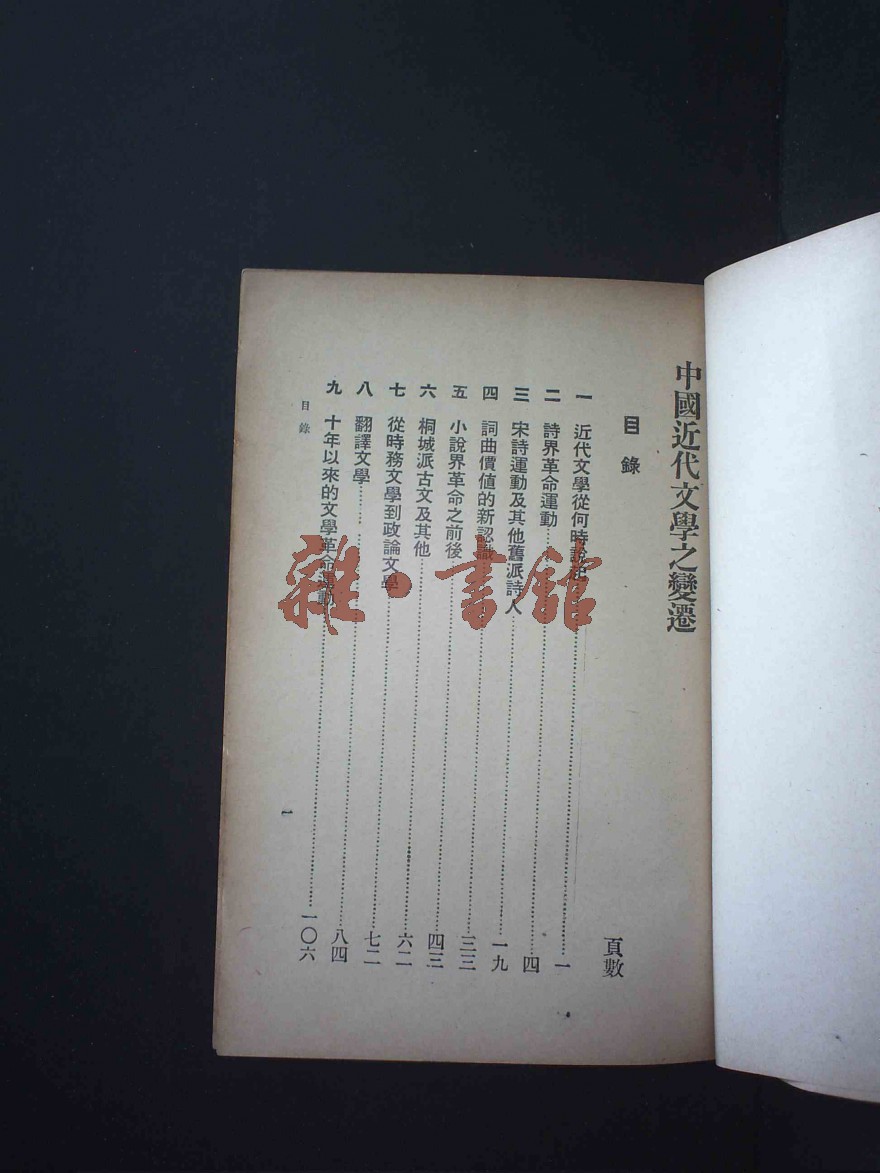 中國近代文學之變遷
目錄
頁數
一 近代文學從何時說起……一
二 詩界革命運動……四
三 宋詩運動及其他舊派詩人……一九
四 詞曲價值的新認識……三三
五 小說界革命之前後……四三
六 桐城派古文及其他……六二
七 從時務文學到政論文學……七二
八 翻譯文學……八四
九 十年以來的文學革命運動……一〇六
目錄
一
雜·書館